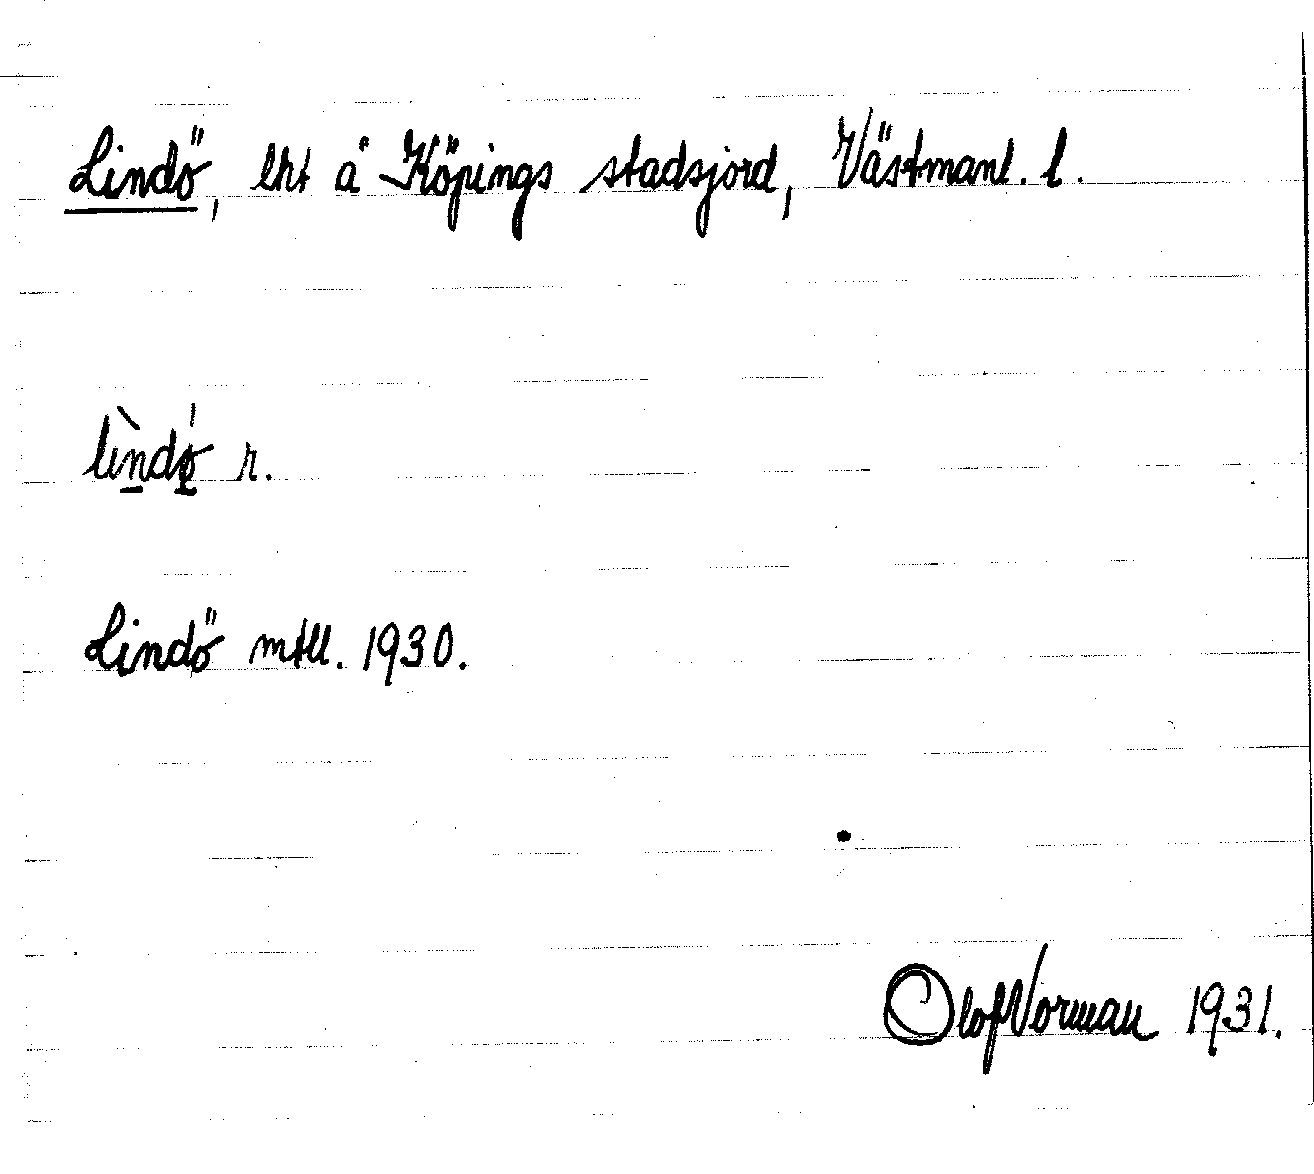 Lindö, lht å Köpings stadsjord, Västmanl. l.
lìndǿ r.
Lindö mtll. 1930.
Olof Norman 1931.